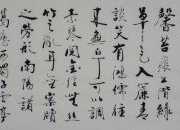 馨苔痕上階綠
草色入簾青
談笑有鴻儒往
來無白丁可以調
素琴閱金經無絲
竹之亂耳無案牘
之勞形南陽諸
葛廬西蜀子雲亭